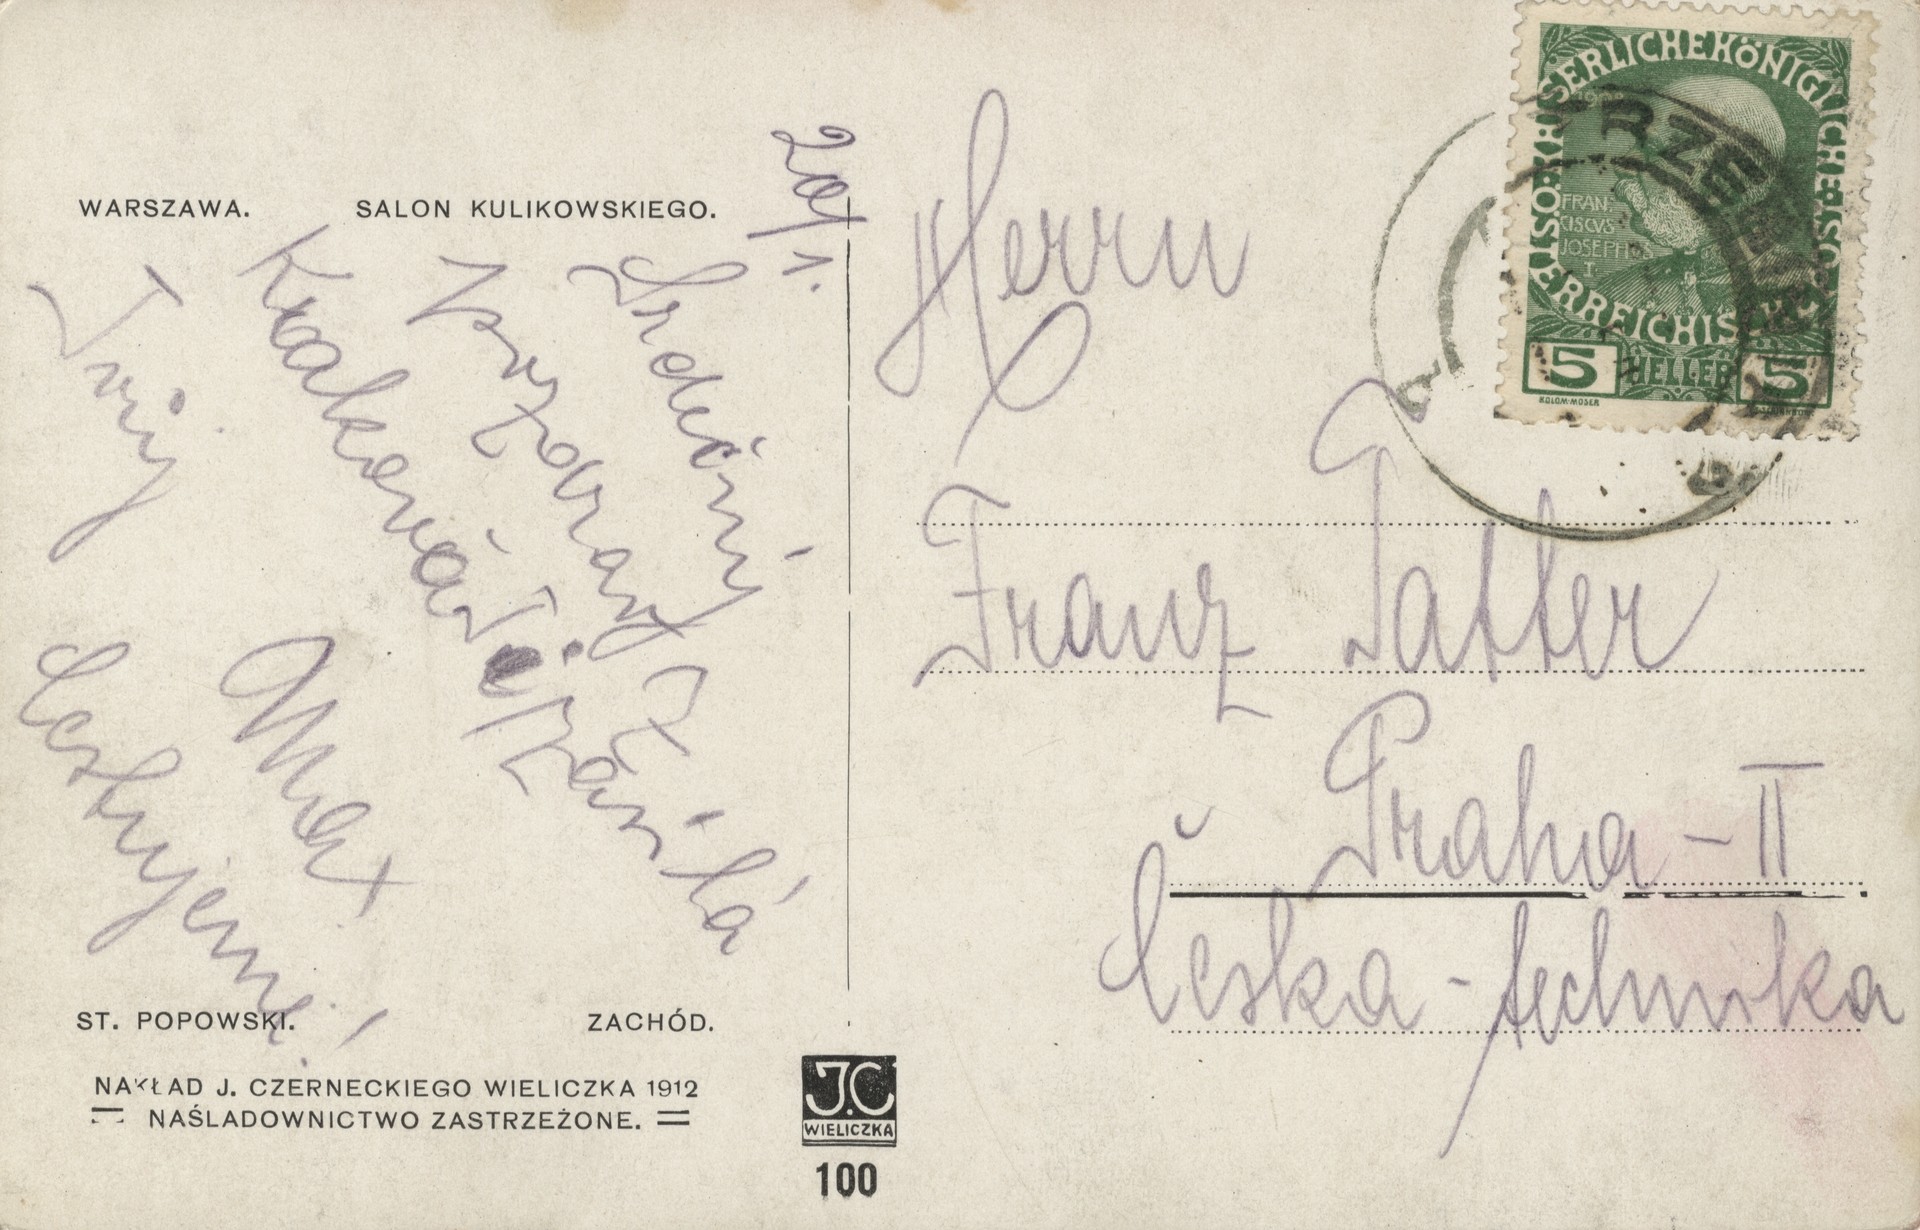 WARSZAWA. SALON KULIKOWSKIEGO.
20/1.
Srdečný
pozdrav z
Krakova
zasílá
Tvůj
Max
Cestujeme!
ST. POPOWSKI. ZACHÓD.
NAKŁAD J. CZERNECKIEGO WIELICZKA 1912
NAŚLADOWNICTWO ZASTRZEŻONE.
J.C
WIELICZKA
100
Herrn
Franz Tatter
Praha - II
Česka - technika
KAISERLICHE KÖNIGLICHE ÖSTERREICHISCHE
1908
FRAN
CISCVS
JOSEPHVS
I
5 HELLER 5
KOLOM·MOSER
RZE